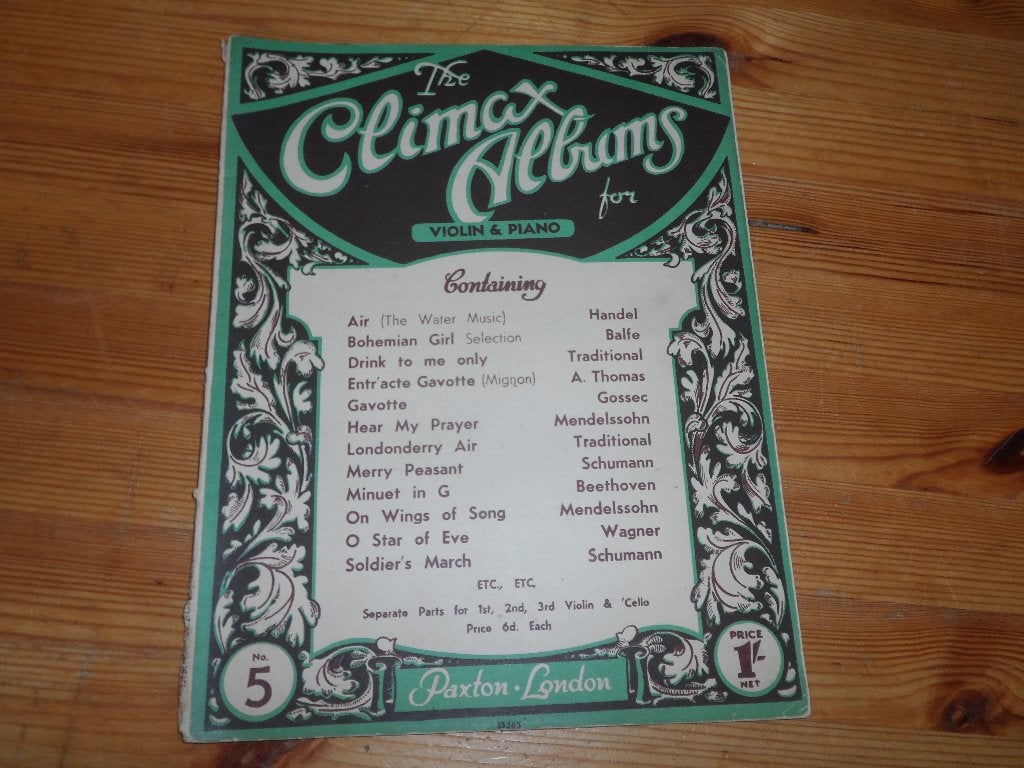 The
Climax
Albums
for
VIOLIN & PIANO
Containing
Air (The Water Music) Handel
Bohemian Girl Selection Balfe
Drink to me only Traditional
Entr'acte Gavotte (Mignon) A. Thomas
Gavotte Gossec
Hear My Prayer Mendelssohn
Londonderry Air Traditional
Merry Peasant Schumann
Minuet in G Beethoven
On Wings of Song Mendelssohn
O Star of Eve Wagner
Soldier's March Schumann
ETC., ETC,
Separate Parts for 1st, 2nd, 3rd Violin & 'Cello
Price 6d. Each
No.
5
Paxton · London
PRICE
1/-
NET
15365